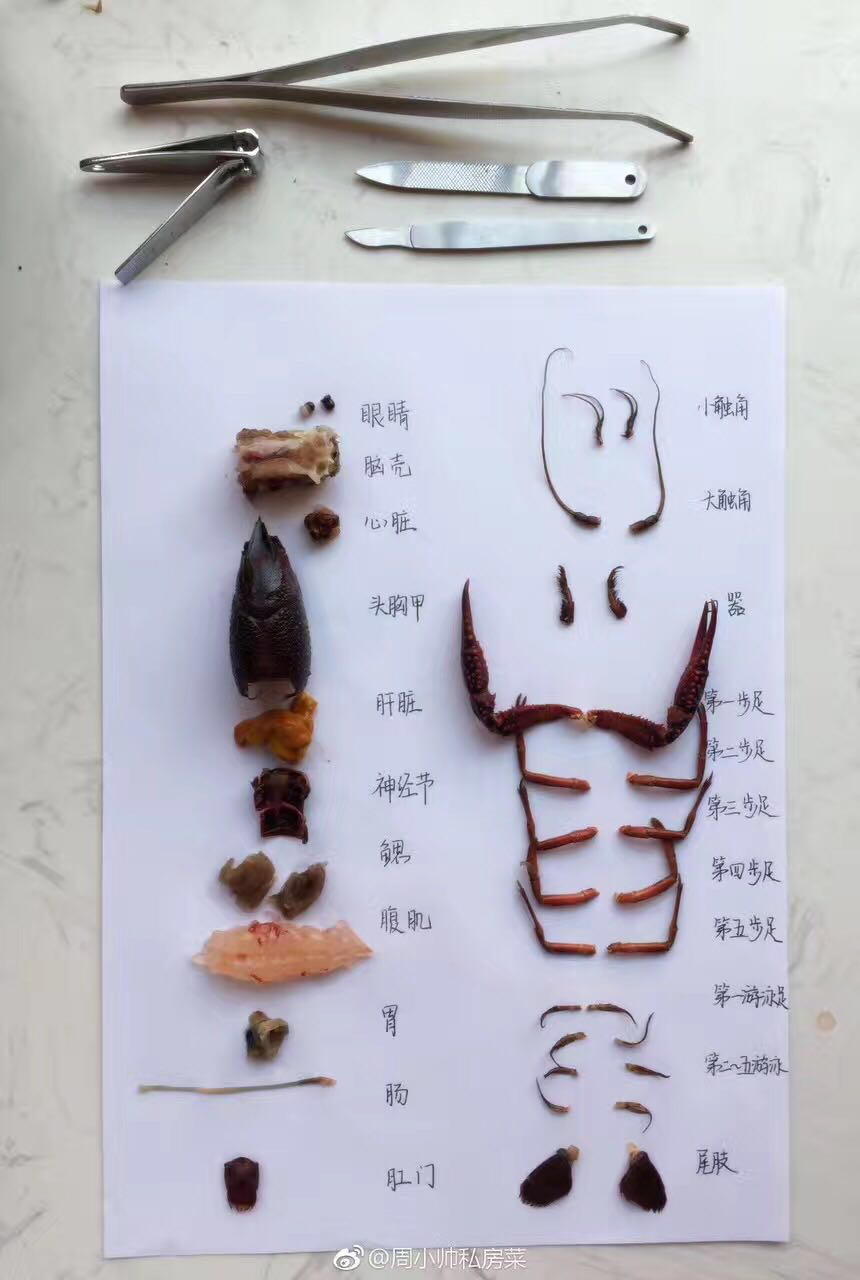 眼睛
脑壳
心脏
头胸甲
肝脏
神经节
鳃
腹肌
胃
肠
肛门
小触角
大触角
器
第一步足
第二步足
第三步足
第四步足
第五步足
第一游泳足
第二~五游泳
尾肢
@周小帅私房菜